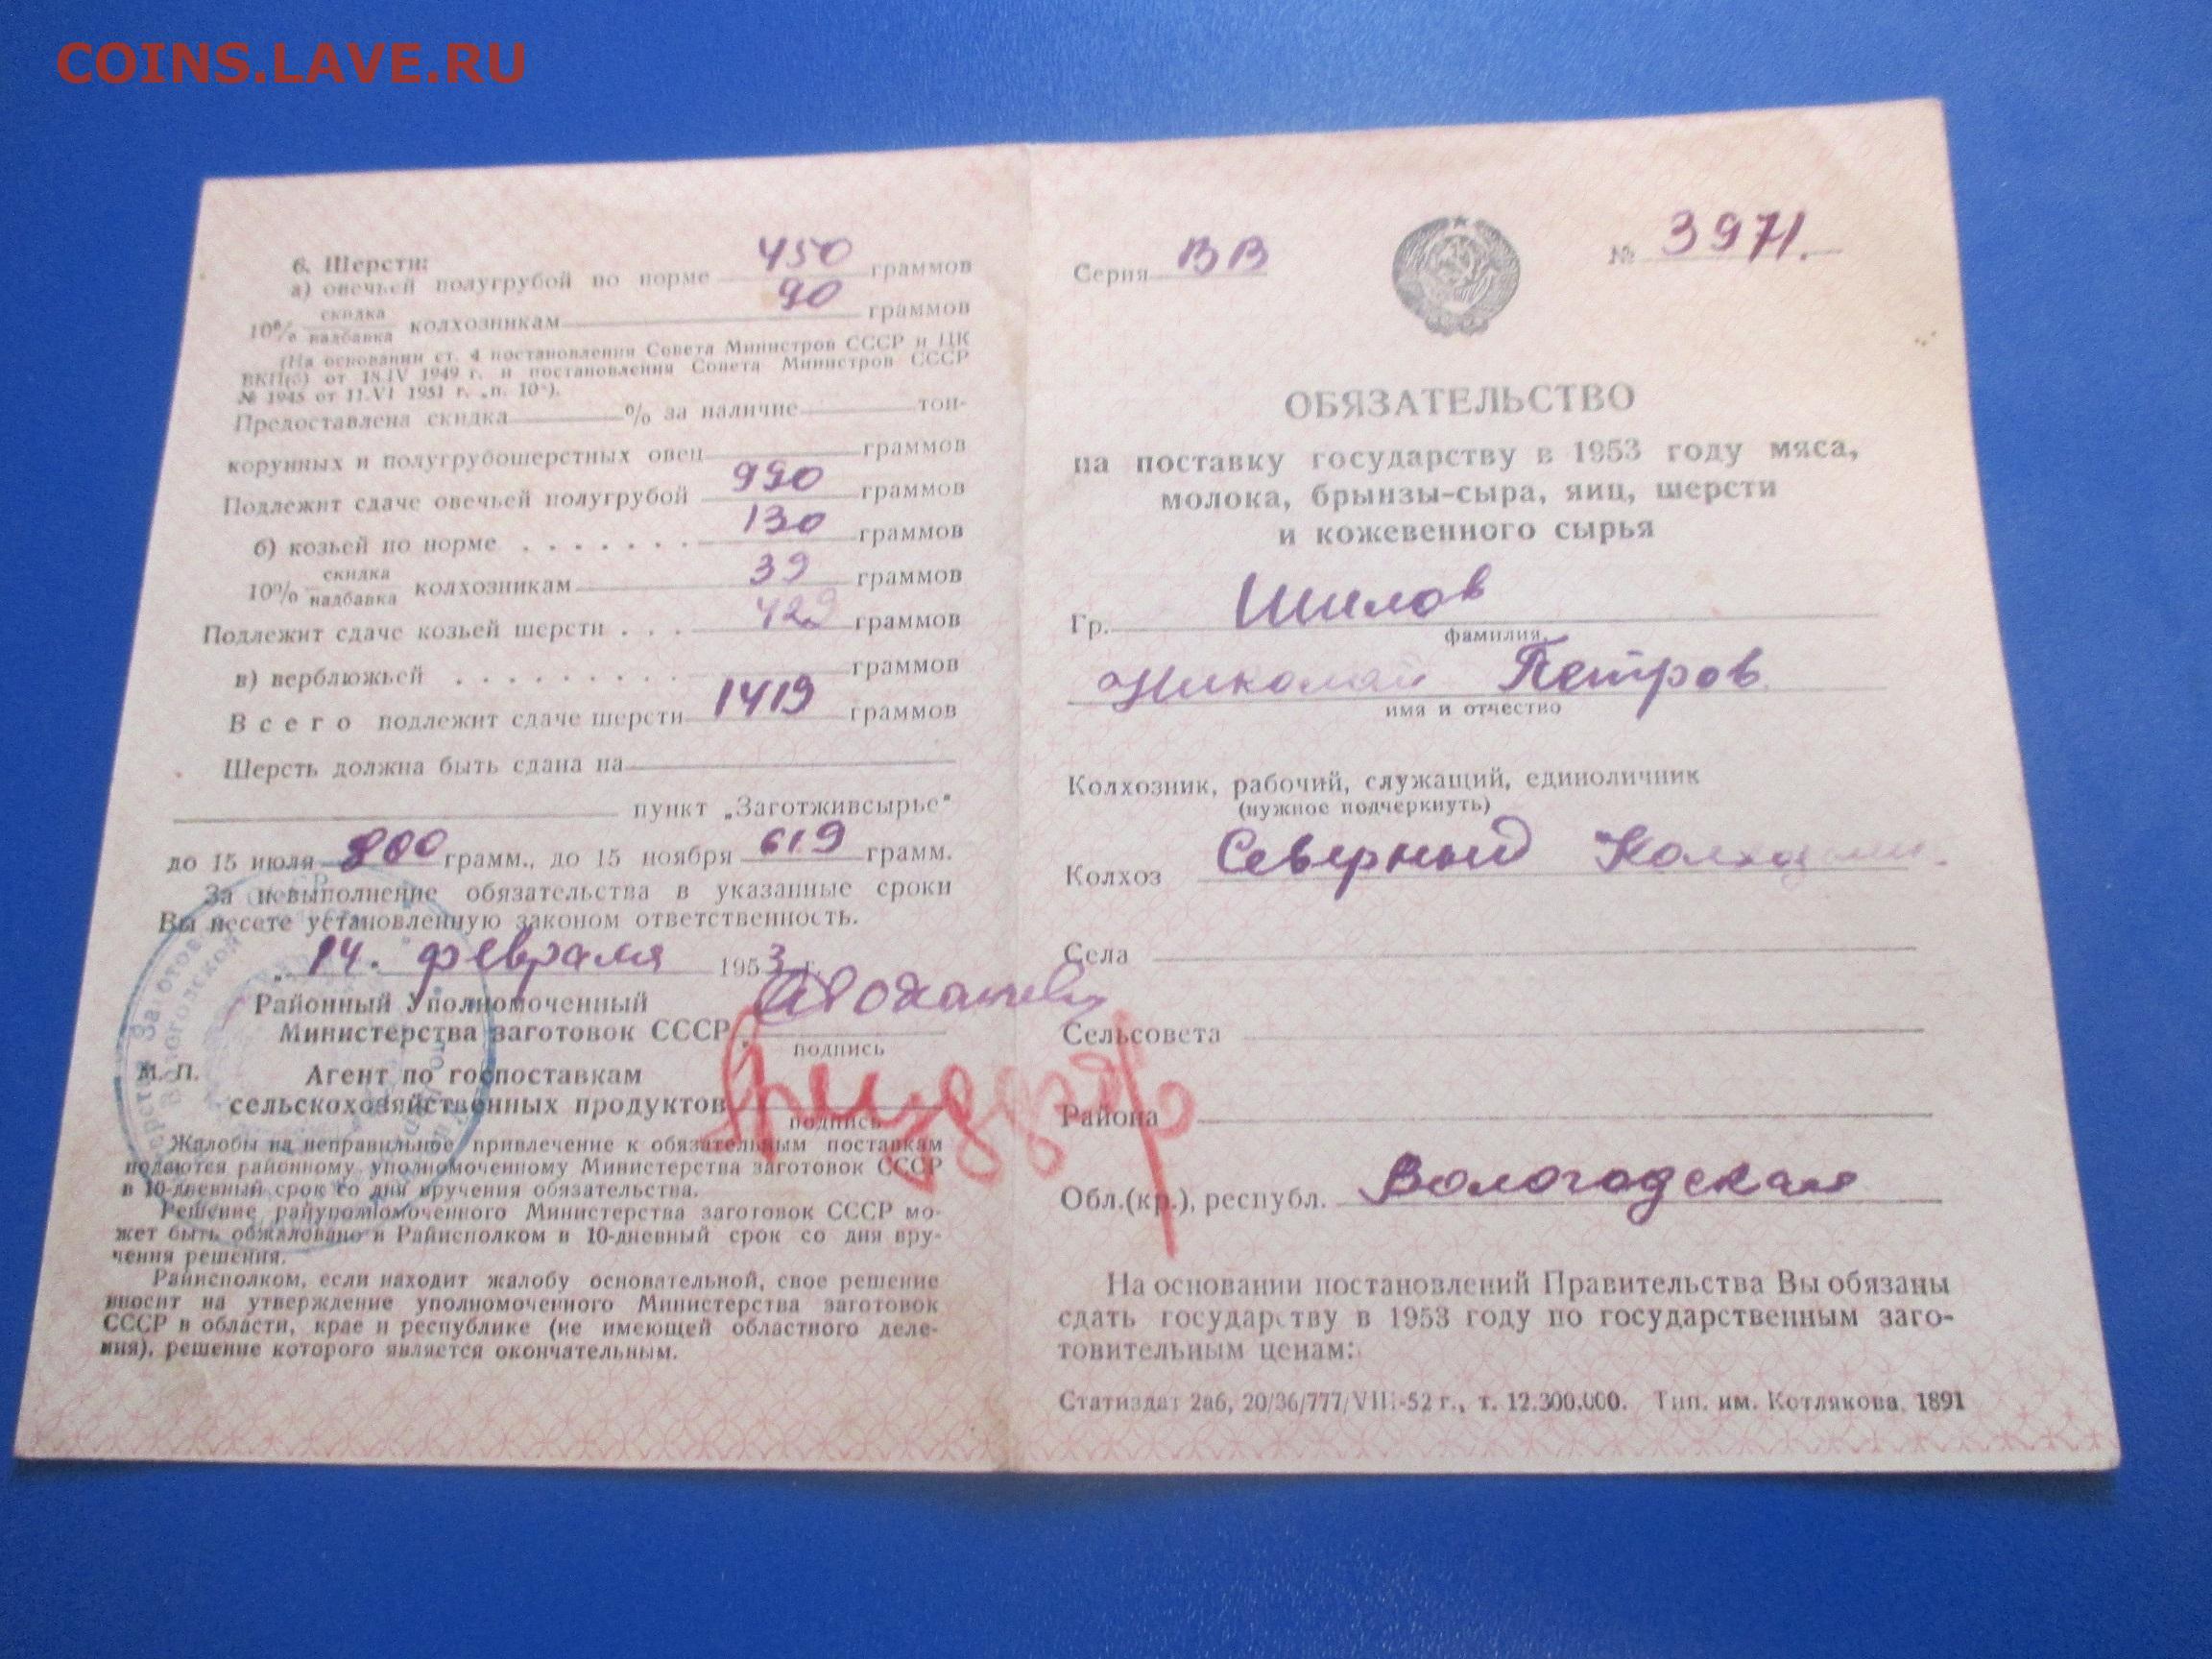 COINS.LAVE.RU
6. Шерсти:
а) овечьей полугрубой по норме 450 граммов
10% скидка надбавка колхозникам 90 граммов
(На основании ст. 4 постановления Совета Министров СССР и ЦК
ВКП(б) от 18.IV 1949 г. и постановления Совета Министров СССР
№ 1945 от 11.VI 1951 г. „п. 10“).
Предоставлена скидка % за наличие тон-
корунных и полугрубошерстных овец граммов
Подлежит сдаче овечьей полугрубой 990 граммов
б) козьей по норме . . . . . . . 130 граммов
10% скидка надбавка колхозникам 39 граммов
Подлежит сдаче козьей шерсти . . . 429 граммов
в) верблюжьей . . . . . . . . . граммов
Всего подлежит сдаче шерсти 1419 граммов
Шерсть должна быть сдана на
пункт „Заготживсырье“
до 15 июля 800 грамм., до 15 ноября 619 грамм.
За невыполнение обязательства в указанные сроки
Вы несете установленную законом ответственность.
„14. февраля 1953 г.
Районный Уполномоченный
Министерства заготовок СССР
подпись
М. П. Агент по госпоставкам
сельскохозяйственных продуктов
подпись
Жалобы на неправильное привлечение к обязательным поставкам
подаются районному уполномоченному Министерства заготовок СССР
в 10-дневный срок со дня вручения обязательства.
Решение райуполномоченного Министерства заготовок СССР мо-
жет быть обжаловано в Райисполком в 10-дневный срок со дня вру-
чения решения.
Райисполком, если находит жалобу основательной, свое решение
вносит на утверждение уполномоченного Министерства заготовок
СССР в области, крае и республике (не имеющей областного деле-
ния), решение которого является окончательным.
Серия ВВ № 3971.
ОБЯЗАТЕЛЬСТВО
на поставку государству в 1953 году мяса,
молока, брынзы-сыра, яиц, шерсти
и кожевенного сырья
Гр. Шилов
фамилия,
Николай Петров
имя и отчество
Колхозник, рабочий, служащий, единоличник
(нужное подчеркнуть)
Колхоз Северный
Села
Сельсовета
Района
Обл.(кр.), республ. Вологодская
На основании постановлений Правительства Вы обязаны
сдать государству в 1953 году по государственным заго-
товительным ценам:
Статиздат 2аб, 20/36/777/VIII-52 г., т. 12.300.000. Тип. им. Котлякова, 1891